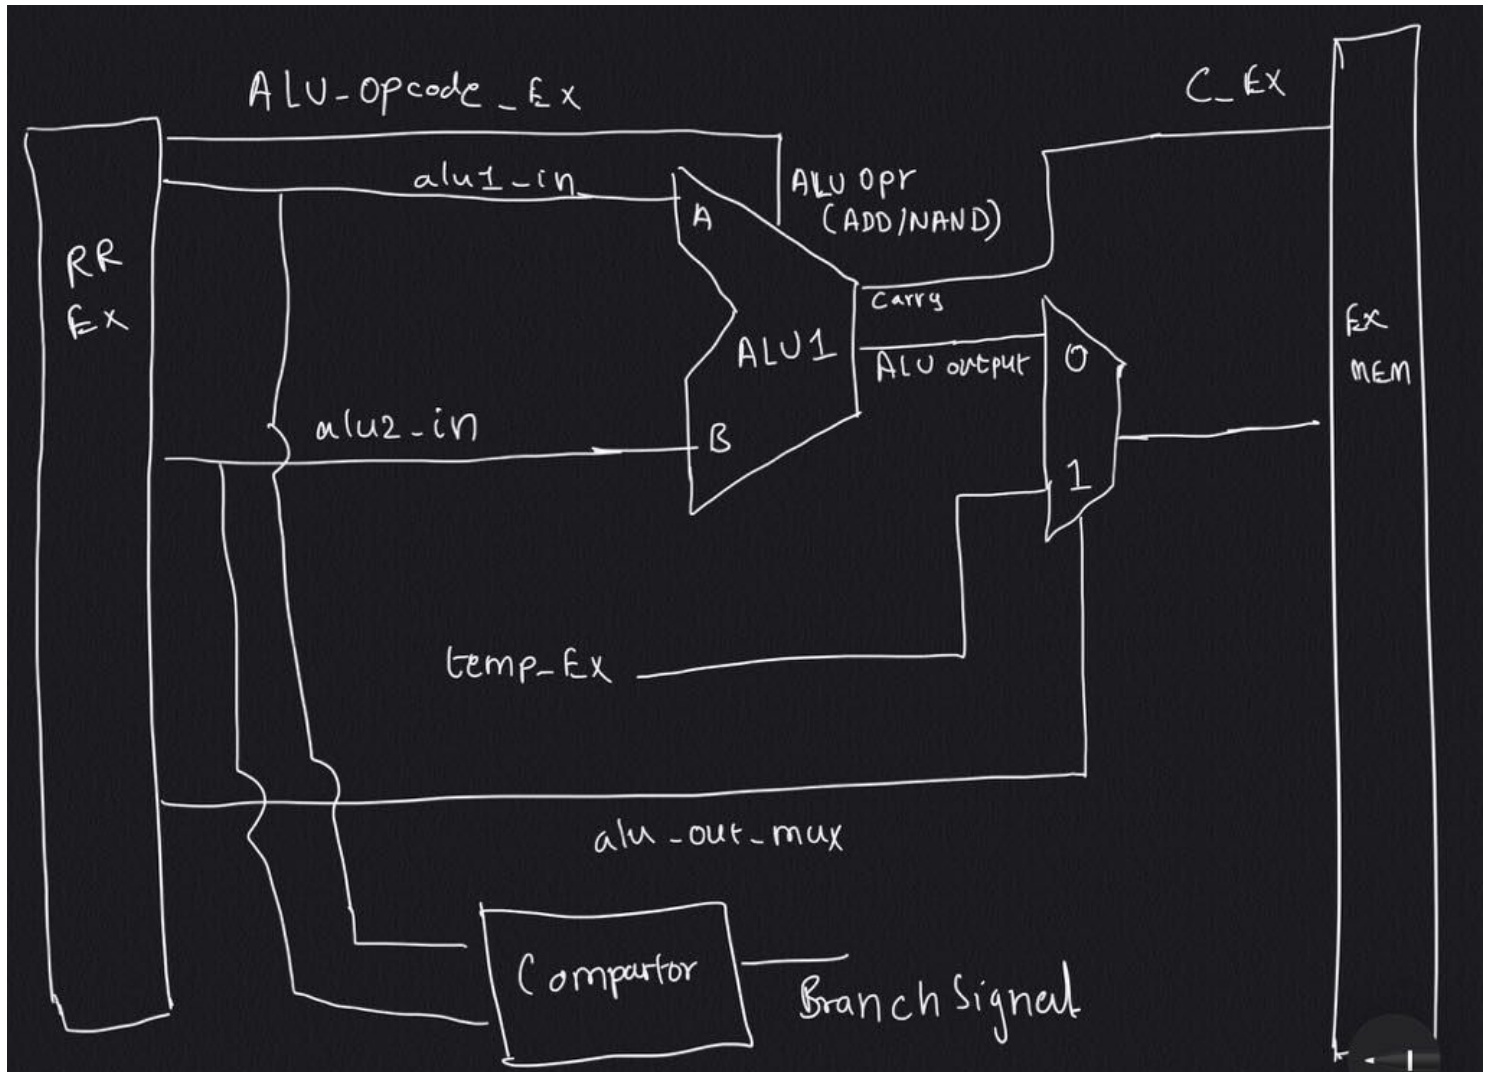 ALU-Opcode_Ex
C_Ex
alu1-in
ALU Opr
(ADD/NAND)
A
RR
Ex
Carry
ALU1
ALU output
0
Ex
MEM
alu2-in
B
1
temp-Ex
alu-out-mux
Compartor
Branch Signal